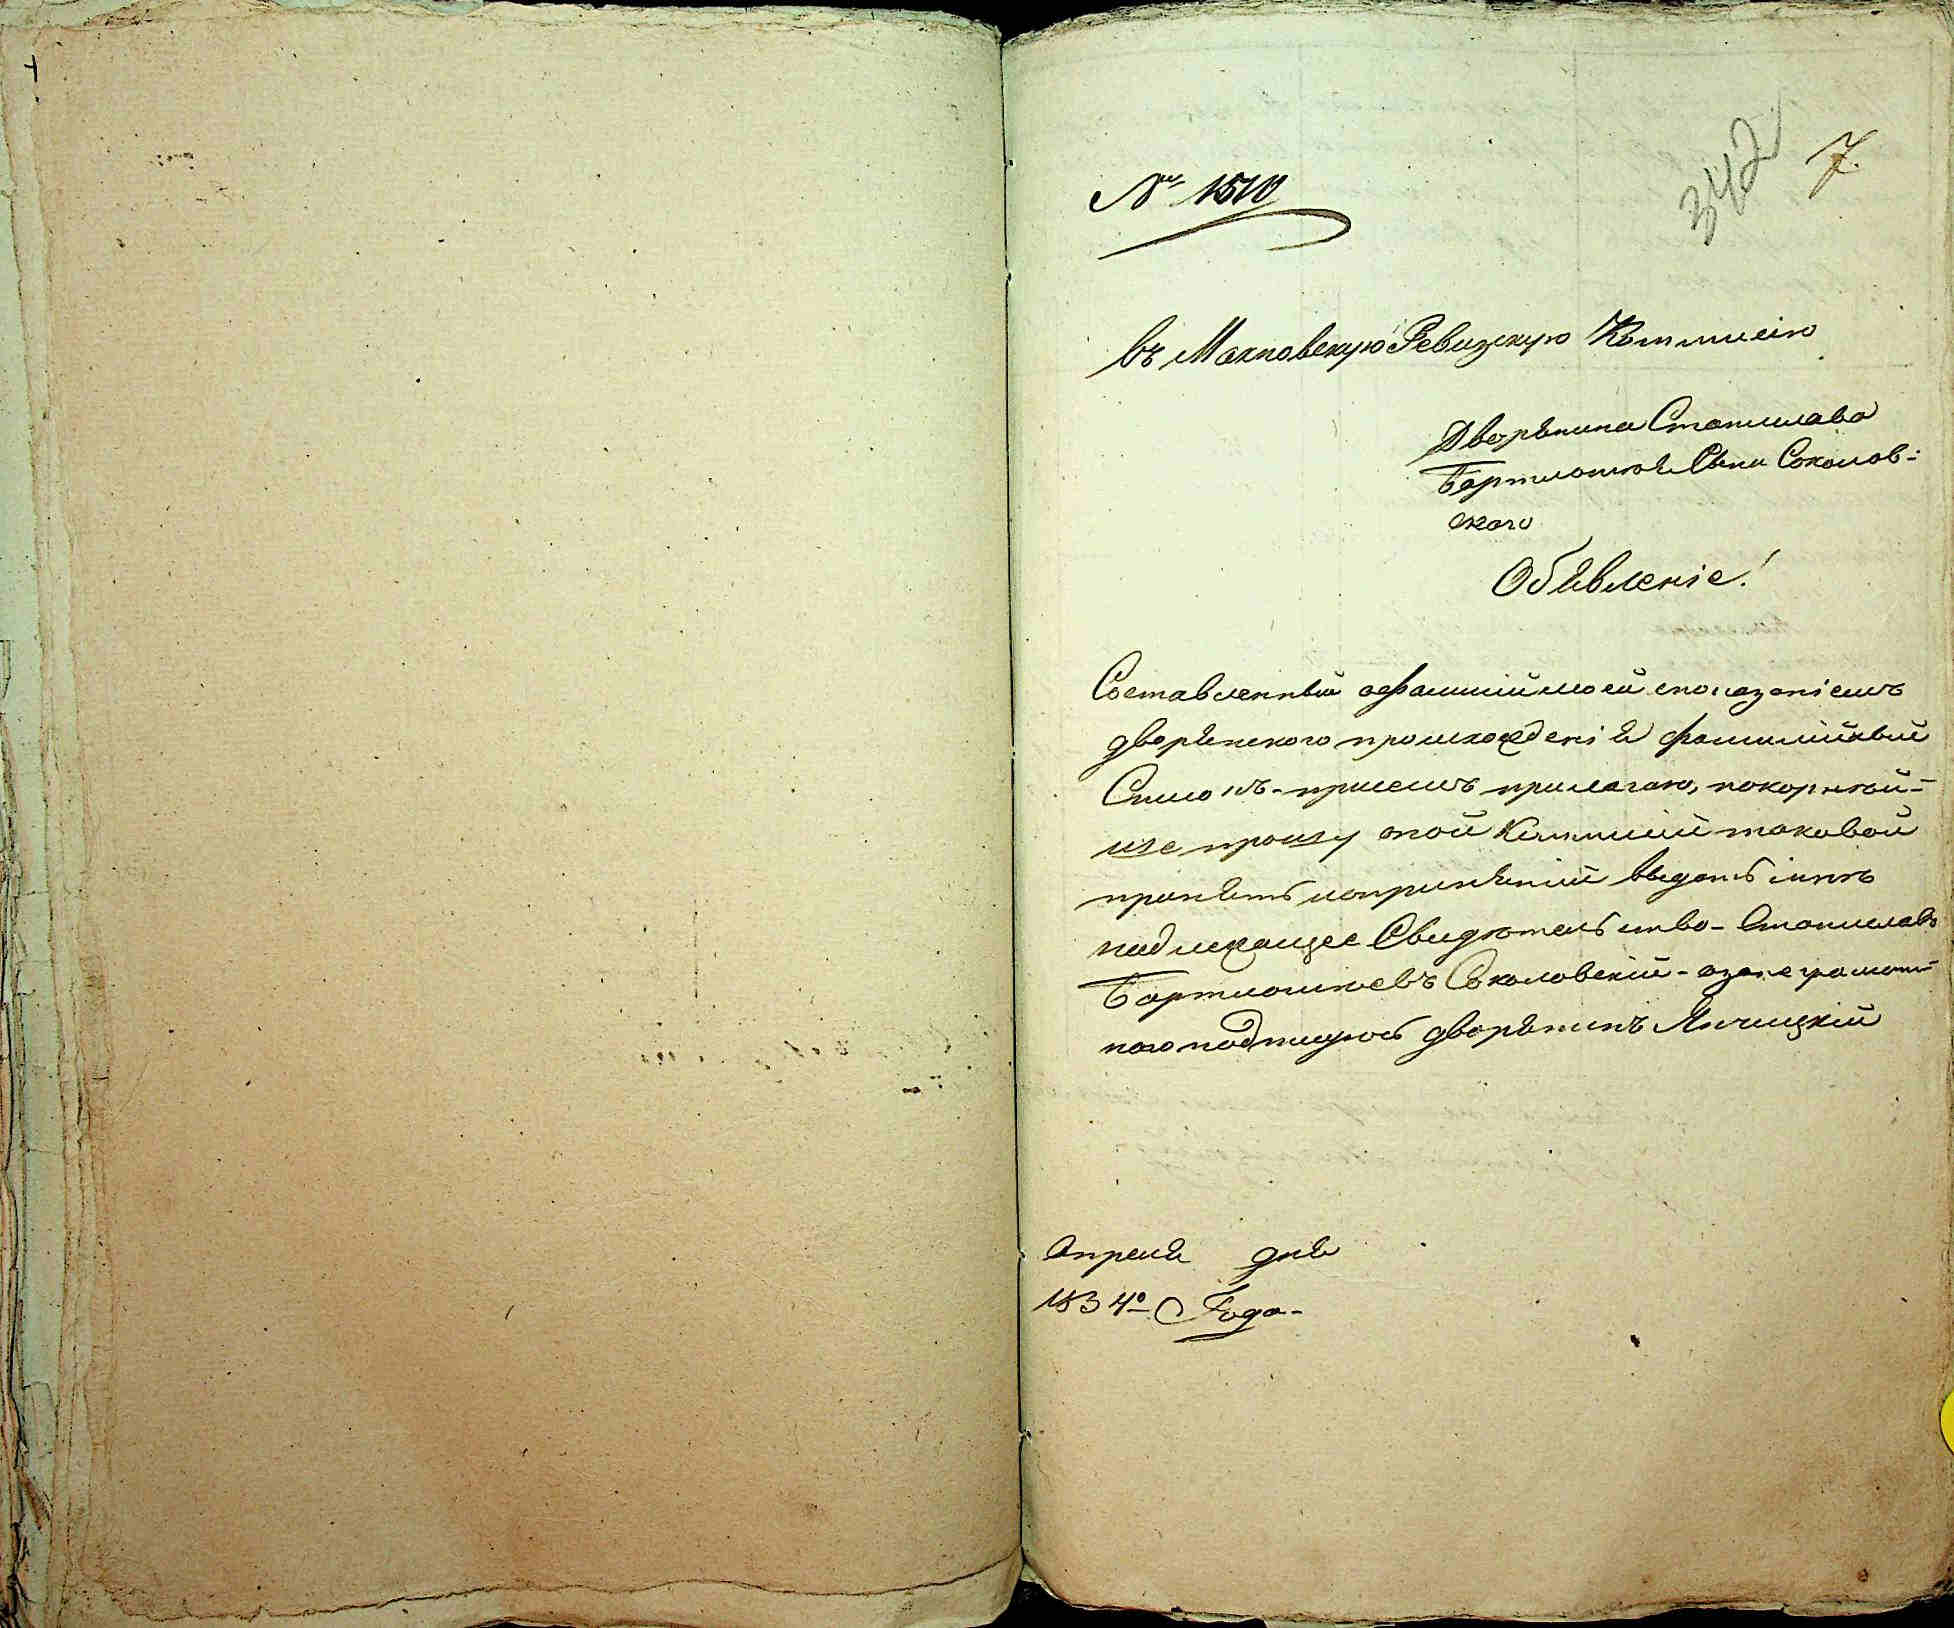 342 7.
№ 1510
Въ Махновскую Ревизскую Коммисію
Дворянина Станислава
Бартломѣя Сына Соколов-
ского
Объявленіе!
Составленный офамиліи моей споказаніемъ
дворянского происхожденія фамилійный
Списокъ-присемъ прилагаю, покорнѣй-
ше прошу оной Коммисіи таковой
принять ипринятіи выдать імнѣ
надлежащее Свидѣтельство- Станиславъ
Бартломѣевъ Соколовскій- азанеграмот-
ного подпишуюсь дворянинъ
Апреля дня
1834º Года-